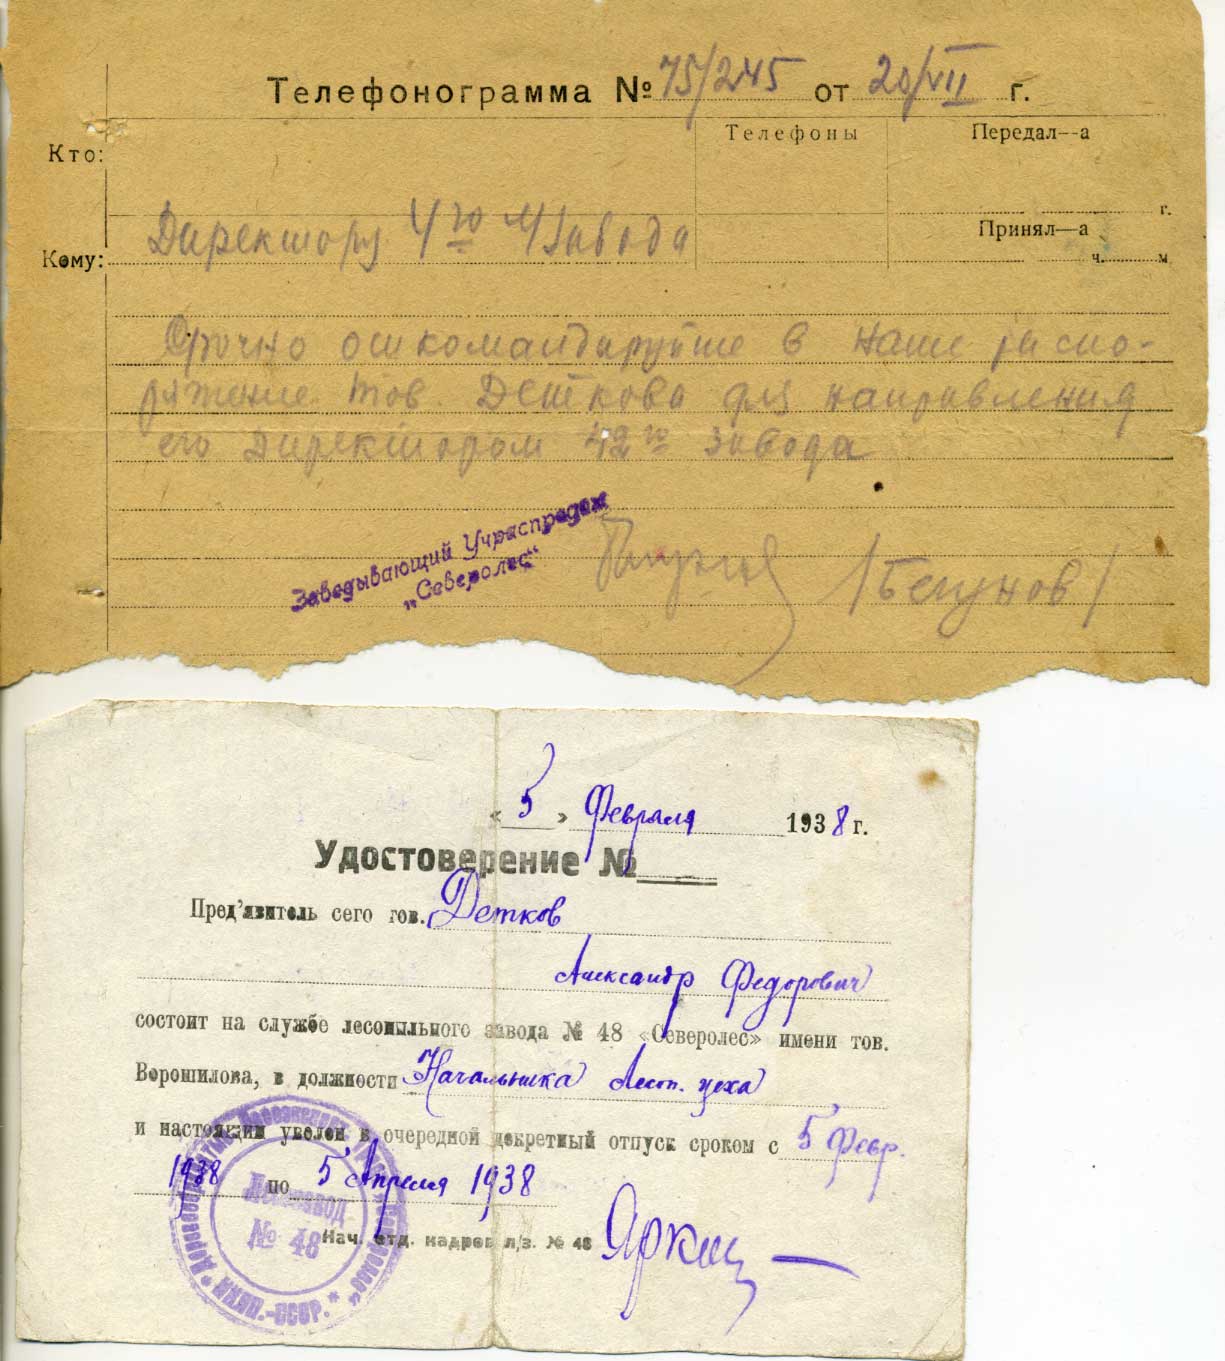 Телефонограмма № 75/245 от 20/VII г.
Телефоны
Передал—а
Кто:
г.
Директору 4го Л/завода
Принял—а
Кому:
ч. м
Срочно откомандируйте в наше распо-
ряжение тов. Деткова для направления
его директором 42го завода
Заведывающий Учраспредом
„Северолес“
/Бегунов/
« 5 » Февраля 1938 г.
Удостоверение №
Пред'явитель сего тов. Детков
Александр Федорович
состоит на службе лесопильного завода № 48 «Северолес» имени тов.
Ворошилова, в должности Начальника Лесоп. цеха
и настоящим уволен в очередной декретный отпуск сроком с 5 Февр.
1938 по 5 Апреля 1938
Лесозавод
№ 48
Нач. отд. кадров л/з. № 48
НКЛП.-СССР.